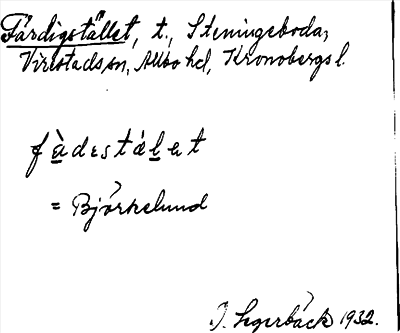 Färdigstället, t., Steningeboda,
Virestads sn, Allbo hd, Kronobergs l.
fàdestá̀let
= Björkelund
J. Segerbäck 1932.